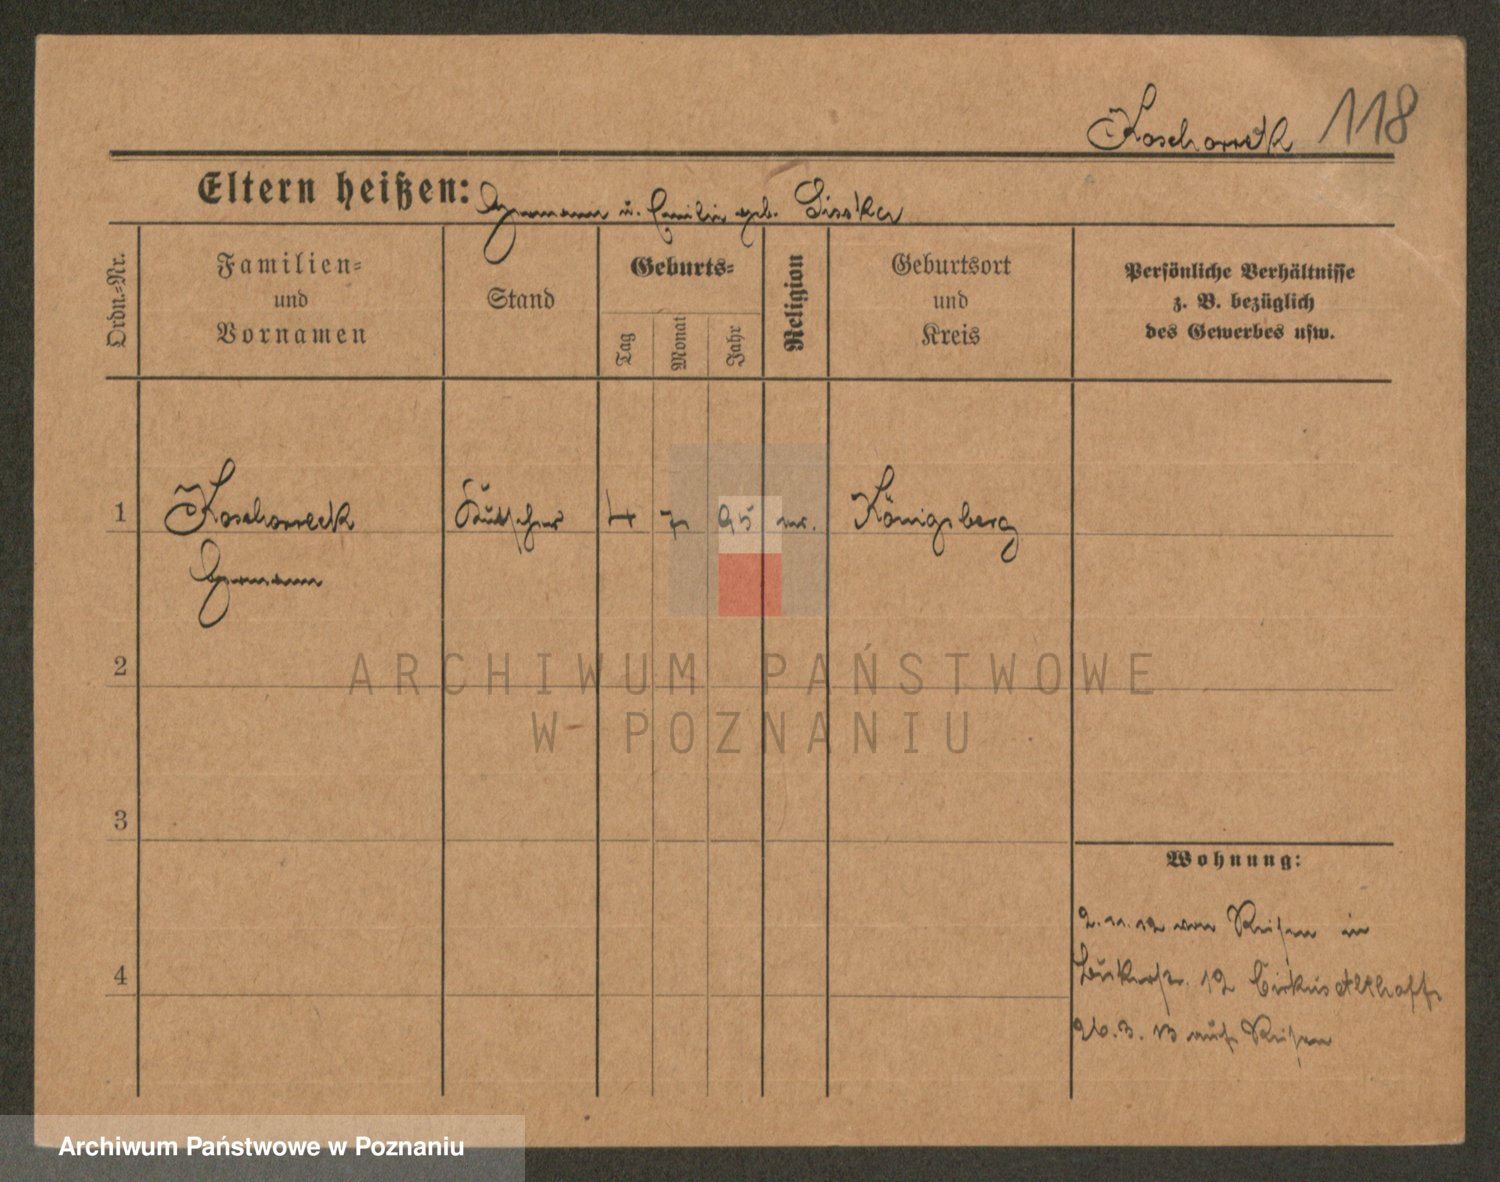 Koschorreck 118
Eltern heißen: Hermann u. Emilie geb.
Ordn.-Nr.
Familien-
und
Vornamen
Stand
Geburts-
Tag
Monat
Jahr
Religion
Geburtsort
und
Kreis
Persönliche Verhältnisse
z. B. bezüglich
des Gewerbes usw.
1 Koschorreck Kutscher 4 7 95 ev. Königsberg
Hermann
2
ARCHIWUM PAŃSTWOWE
W POZNANIU
3
Wohnung:
2.11.12 von Reisen in
12 Cirkus Althoff
4
26.3.13 auf Reisen
Archiwum Państwowe w Poznaniu